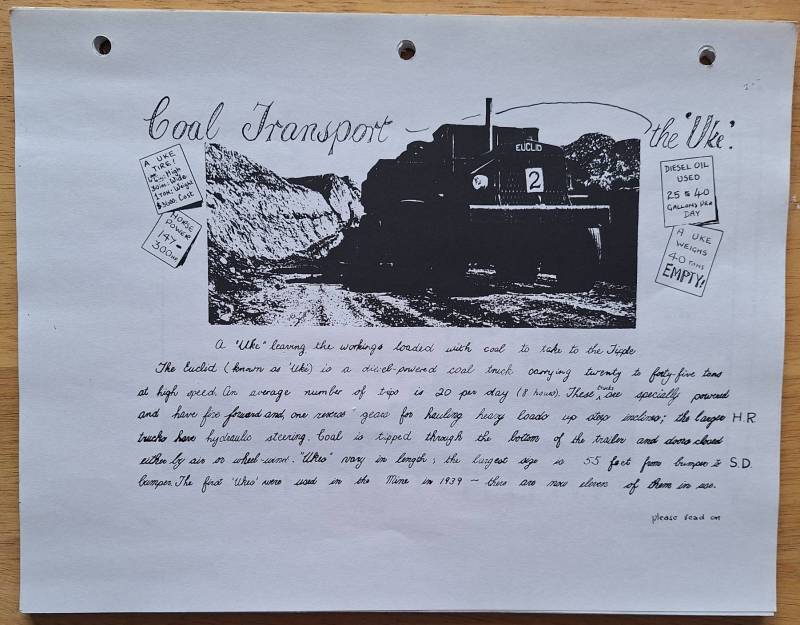 Coal Transport – the 'Uke'.
A UKE
TIRE!
High
Wide
1 Ton. Weight
Cost
HORSE
POWER
147-
300 HP
EUCLID
2
DIESEL OIL
USED
25 to 40
GALLONS PER
DAY
A UKE
WEIGHS
40 TONS
EMPTY!
A "Uke" leaving the workings loaded with coal to take to the Tipple
The Euclid (known as 'Uke') is a diesel-powered coal truck carrying twenty to forty-five tons
at high speed. An average number of trips is 20 per day (8 hours). These trucks are specially powered
and have five forward and, one reverse gears for hauling heavy loads up steep inclines; the larger H.R.
trucks have hydraulic steering. Coal is tipped through the bottom of the trailer and doors closed
either by air or wheel-wind. "Ukes" vary in length; the largest size is 55 feet from bumper to S.D.
bumper. The first 'Ukes' were used in the Mine in 1939 – there are now eleven of them in use.
please read on